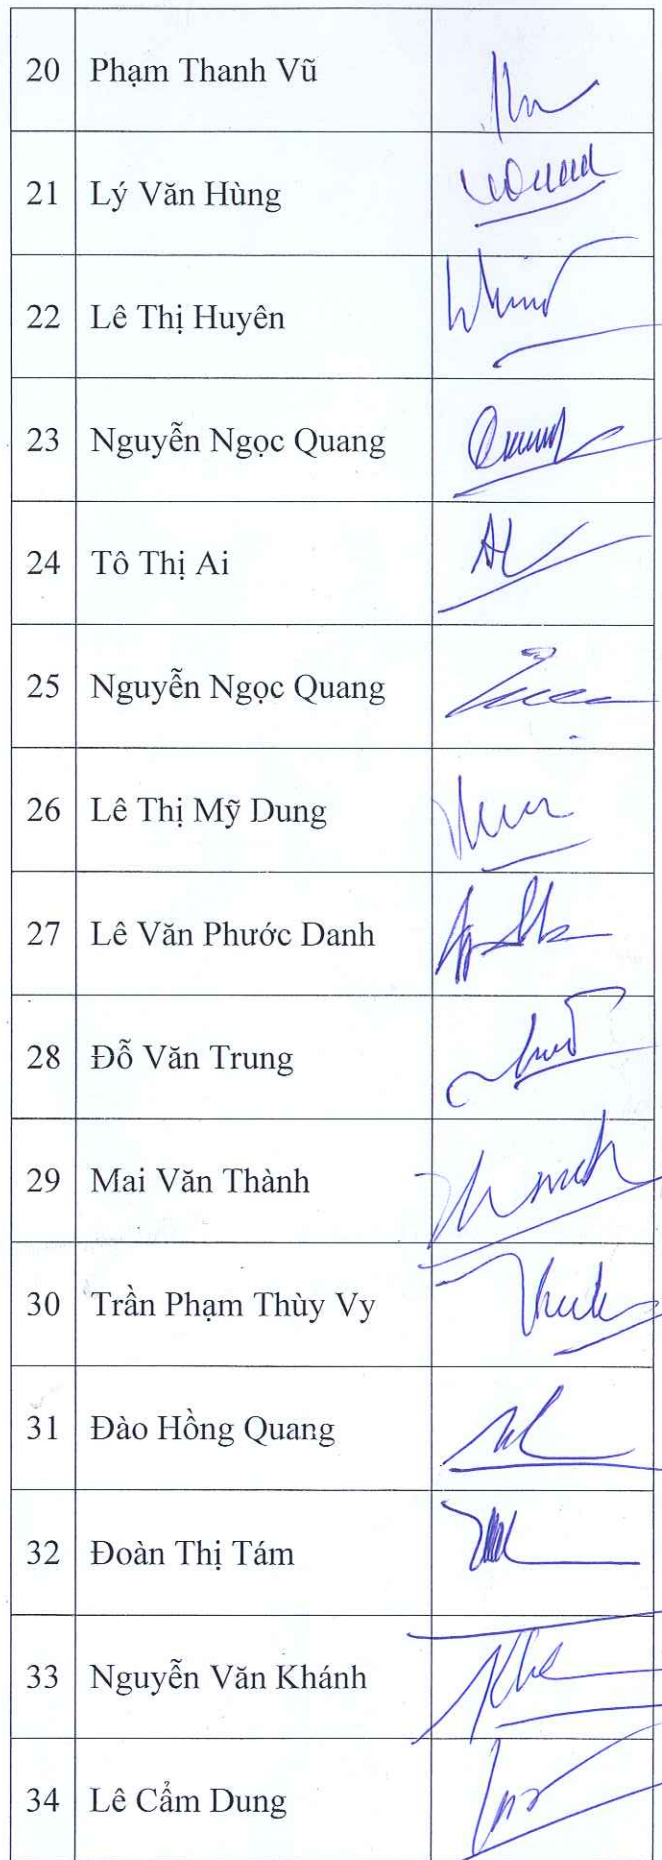 20 Phạm Thanh Vũ
21 Lý Văn Hùng
22 Lê Thị Huyên
23 Nguyễn Ngọc Quang
24 Tô Thị Ai
25 Nguyễn Ngọc Quang
26 Lê Thị Mỹ Dung
27 Lê Văn Phước Danh
28 Đỗ Văn Trung
29 Mai Văn Thành
30 Trần Phạm Thùy Vy
31 Đào Hồng Quang
32 Đoàn Thị Tám
33 Nguyễn Văn Khánh
34 Lê Cẩm Dung